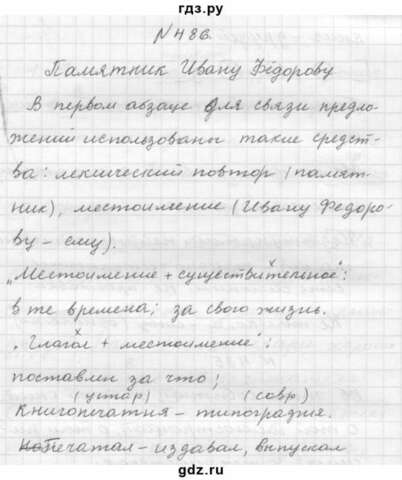 гдз.ру
№486
Памятник Ивану Фёдорову
В первом абзаце для связи предло-
жений использованы такие средст-
ва: лексический повтор (памят-
ник), местоимение (Ивану Федоро-
ву - ему).
„Местоимение + существительное":
в те времена; за свою жизнь.
„Глагол + местоимение":
поставлен за что;
(устар) (совр)
Книгопечатня - типография.
Печатал - издавал, выпускал
gdz.ru